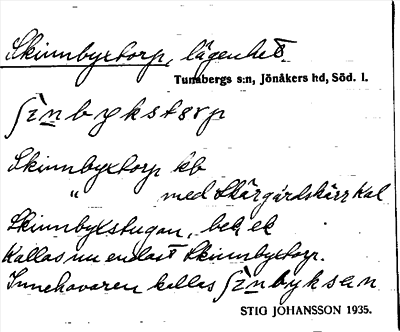 Skinnbyxtorp, lägenhet.
Tunabergs s:n, Jönåkers hd, Söd. l.
ʃìnbykstorp
Skinnbyxtorp kb
" med Skärgårdskärr Kal
Skinnbyxstugan, bek ek
Kallas nu endast Skinnbyxtorp.
Innehavaren kallas ʃìnbyksan
STIG JOHANSSON 1935.